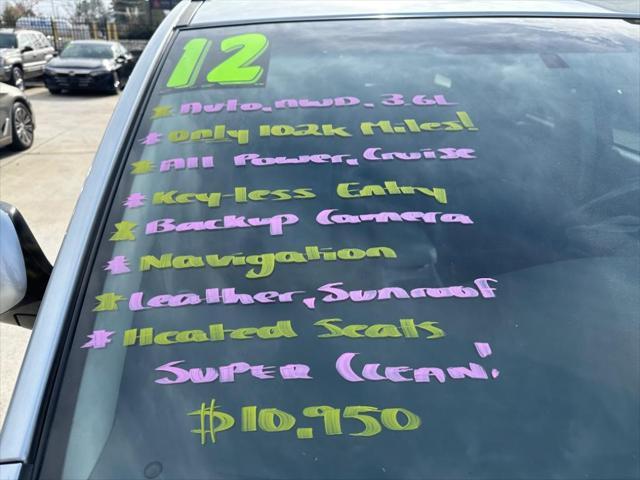 12
* Auto, AWD, 3.6L
* Only 102k Miles!
* All Power, Cruise
* Key-less Entry
* Backup Camera
* Navigation
* Leather, Sunroof
* Heated Seats
Super Clean!
$10,950